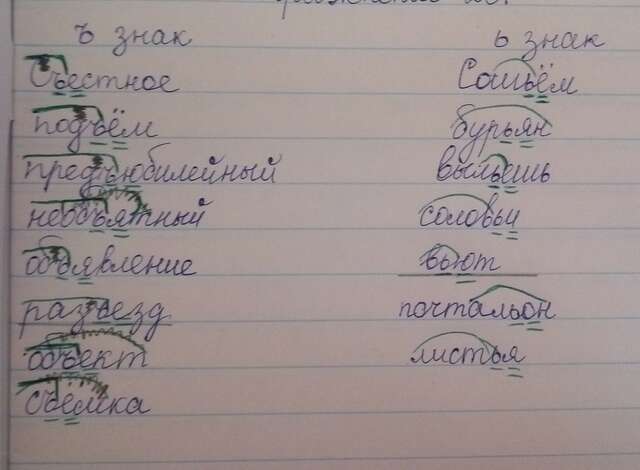 ъ знак ь знак
Съестное Сошьём
подъём бурьян
предъюбилейный выльешь
необъятный соловьи
объявление вьют
разъезд почтальон
объект листья
съёмка